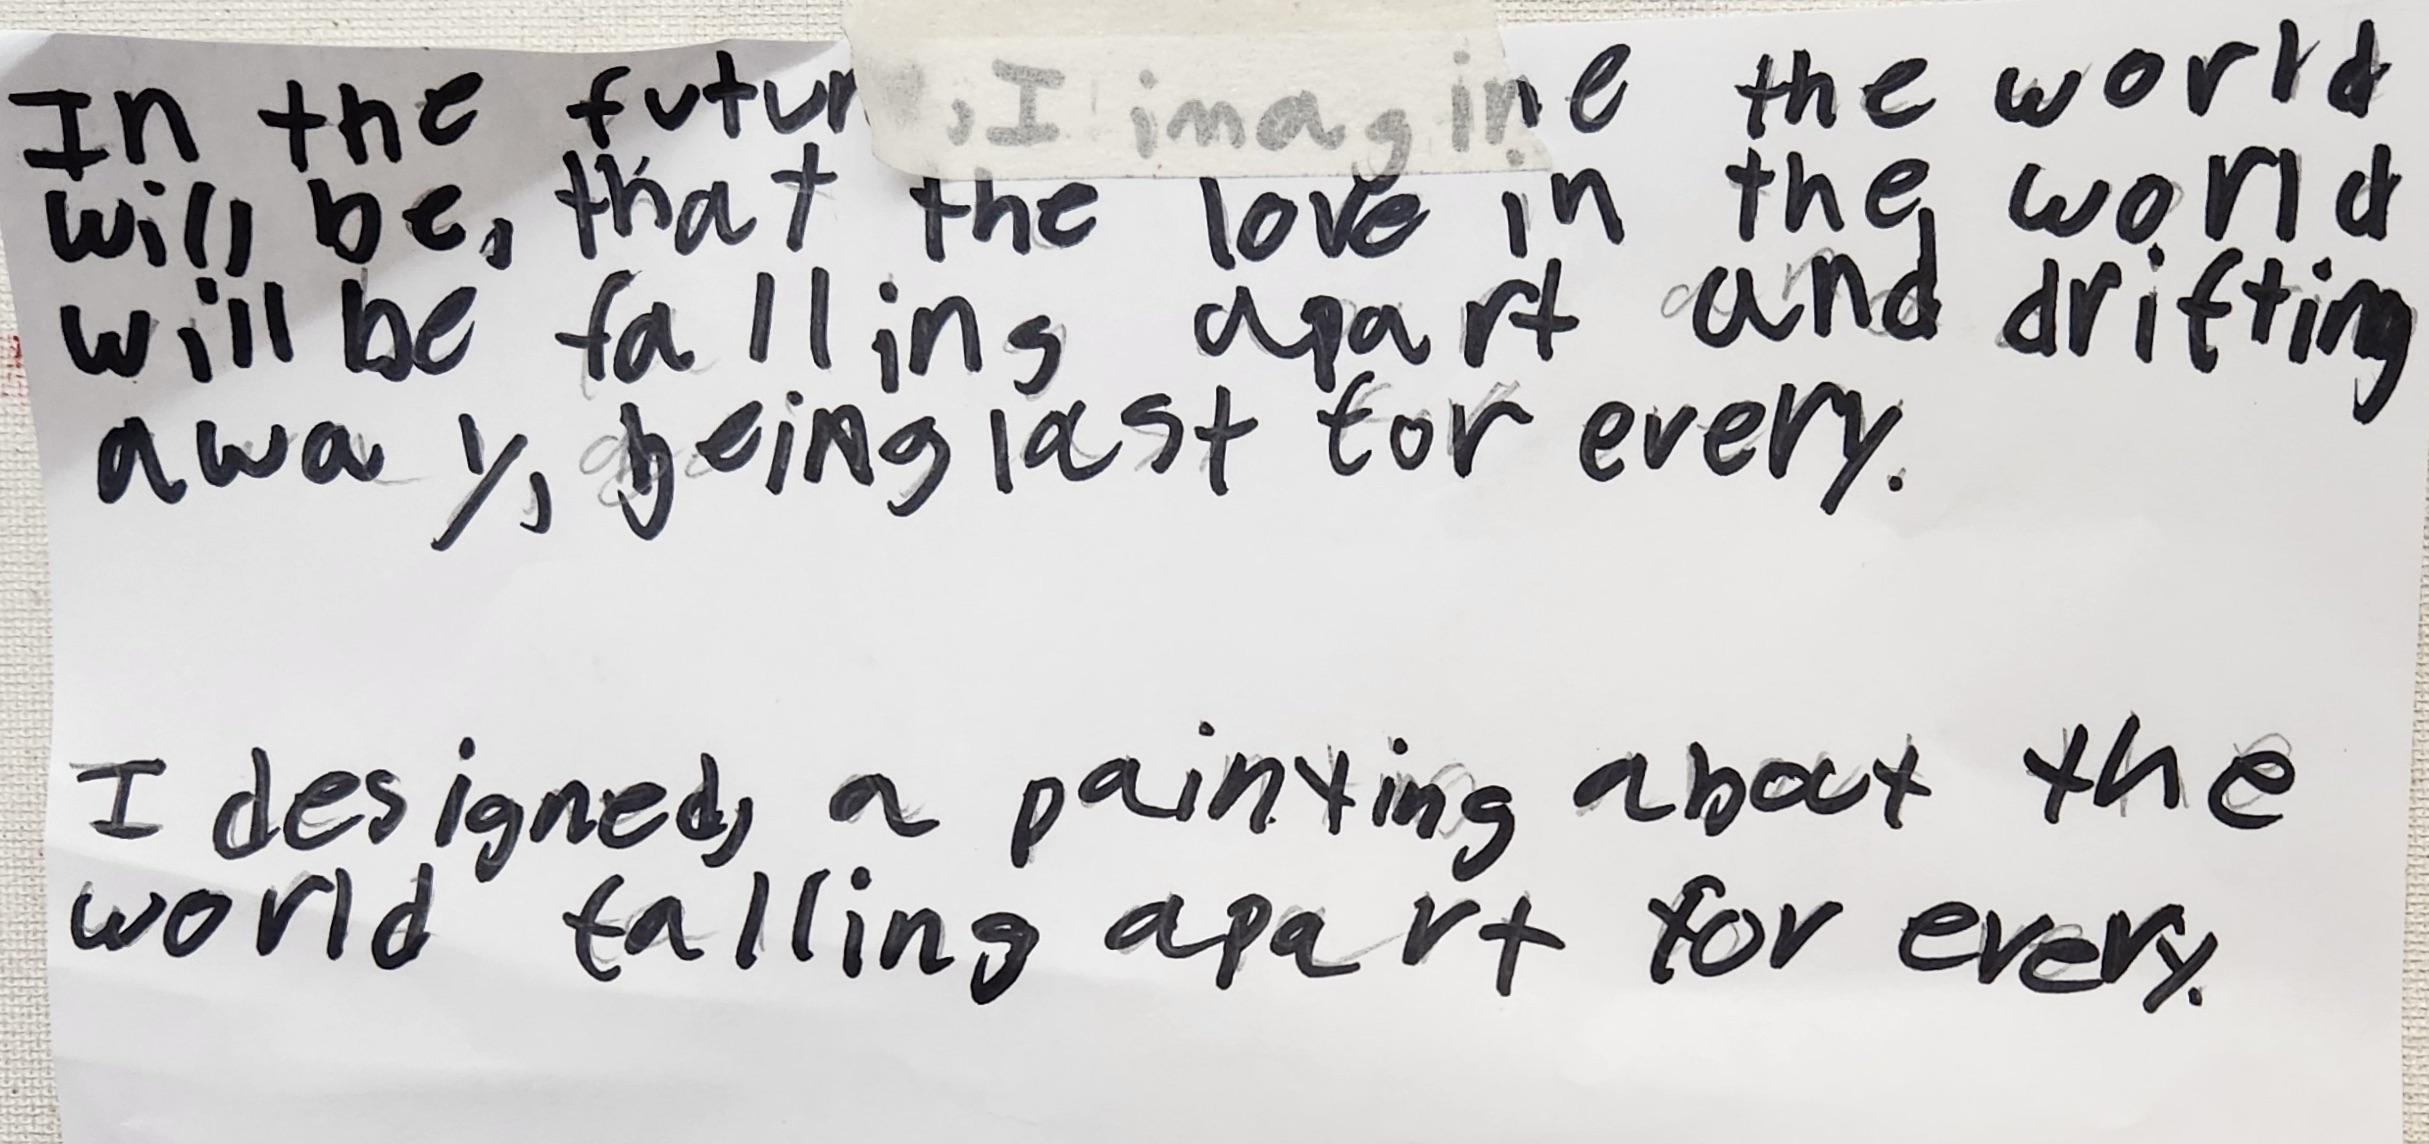 In the future, I imagine the world
will be, that the love in the world
will be falling apart and drifting
away, being last for every.
I designed, a painting about the
world falling apart for every.